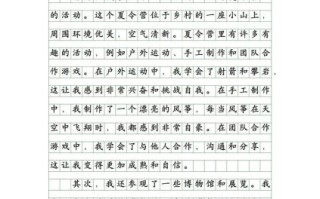 的活动。这个夏令营位于乡村的一座小山上，
周围环境优美，空气清新。夏令营里有许多有
趣的活动，例如户外运动、手工制作和团队合
作游戏。在户外运动中，我学会了射箭和攀岩，
这让我感到非常兴奋和挑战自我。在手工制作
中，我制作了一个漂亮的风筝，每当风筝在天
空中飞翔时，我都感到非常自豪。在团队合作
游戏中，我学会了与他人合作，沟通和分享，
这让我变得更加成熟和自信。
其次，我还参观了一些博物馆和展览。我